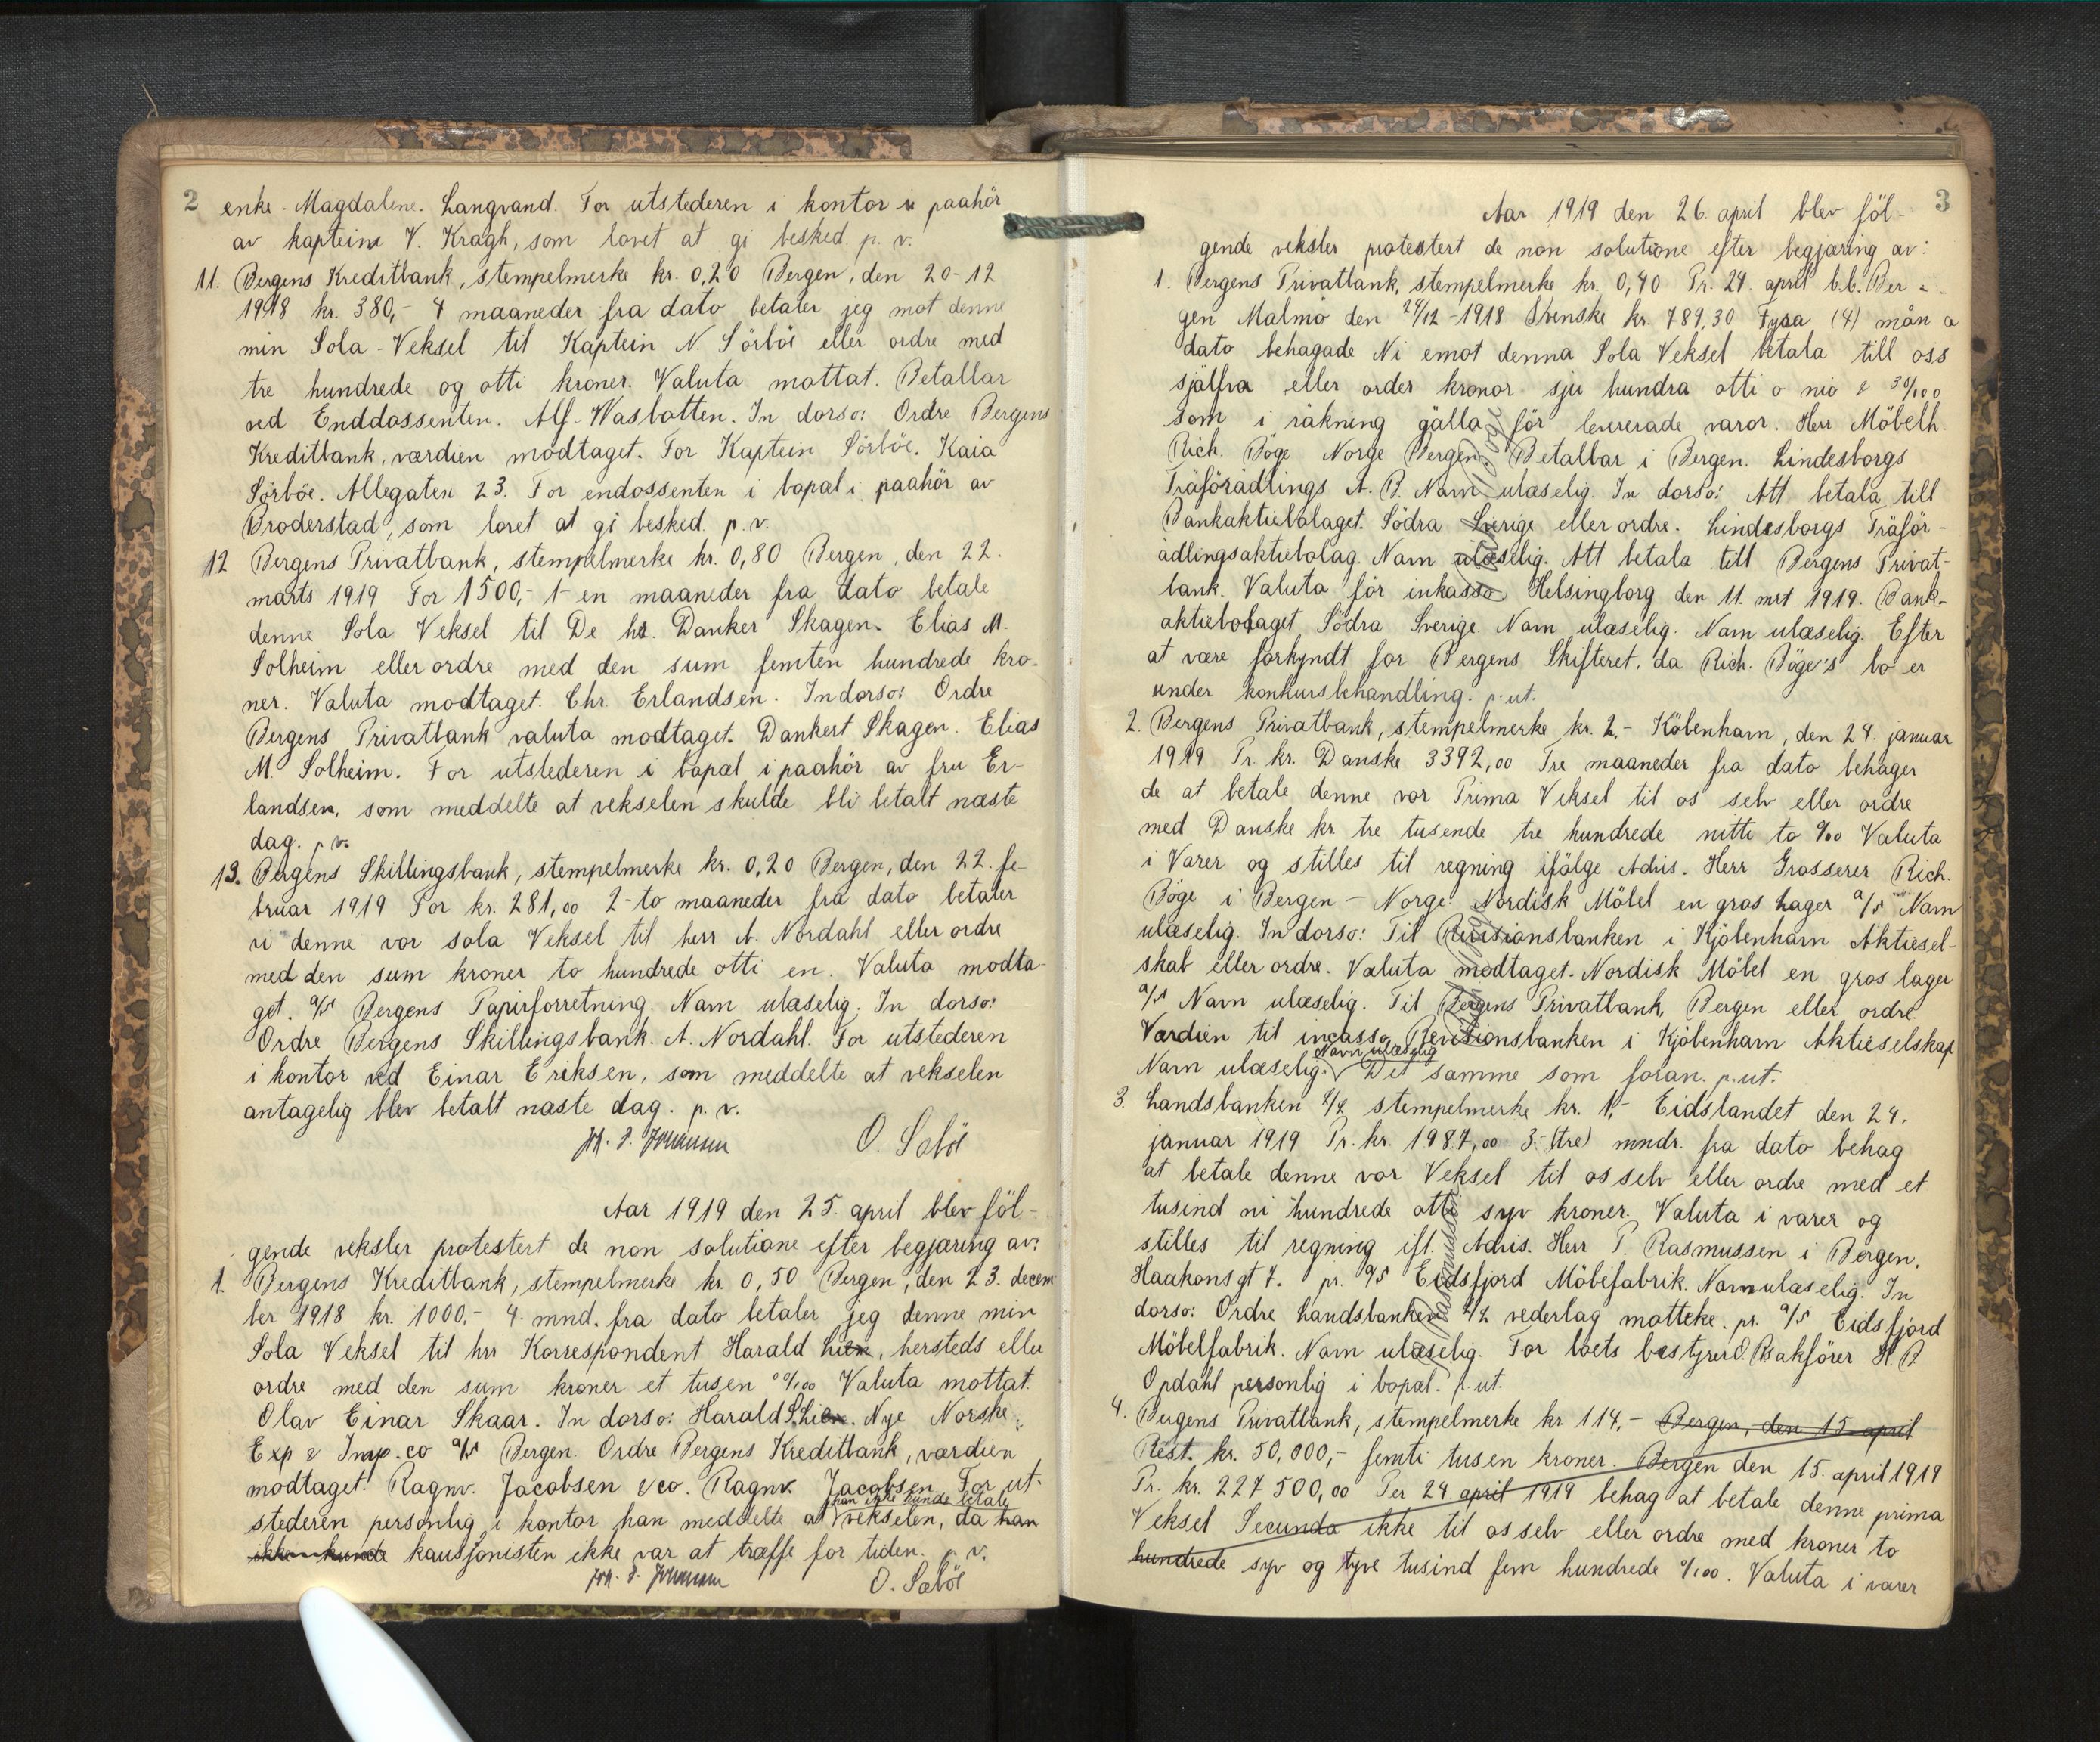 2
enke. Magdalene. Langvand. For utstederen i kontor i paahör
av kaptein V. Kragh, som lovet at gi besked. p. v.
11. Bergens Kreditbank, stempelmerke kr. 0,20 Bergen, den 20-12
1918 kr. 380,- 4 maaneder fra dato betaler jeg mot denne
min Sola-Veksel til Kaptein N. Sörböe eller ordre med
tre hundrede og otti kroner. Valuta mottat. Betalbar
ved Enddossenten. Alf. Wasbotten. In dorso: Ordre Bergens
Kreditbank, værdien modtaget. For Kaptein Sörböe. Kaia
Sörböe. Allegaten 23. For endossenten i bopæl i paahör av
Broderstad, som lovet at gi besked. p. v.
12 Bergens Privatbank, stempelmerke kr. 0,80 Bergen, den 22.
marts 1919 For 1500,- 1- en maaneder fra dato betale
denne Sola Veksel til De hr. Danker Skagen. Elias M.
Solheim eller ordre med den sum femten hundrede kro-
ner. Valuta modtaget. Chr. Erlandsen. In dorso: Ordre
Bergens Privatbank valuta modtaget. Dankert Skagen. Elias
M. Solheim. For utstederen i bopæl i paahör av fru Er-
landsen, som meddelte at vekselen skulde bli betalt næste
dag. p. v.
13. Bergens Skillingsbank, stempelmerke kr. 0,20 Bergen, den 22. fe-
bruar 1919 For kr. 281,00 2- to maaneder fra dato betaler
vi denne vor sola Veksel til herr A. Nordahl eller ordre
med den sum kroner to hundrede otti en. Valuta modta-
get. a/s Bergens Papirforretning. Navn ulæselig. In dorso:
Ordre Bergens Skillingsbank. A. Nordahl. For utstederen
i kontor ved Einar Eriksen, som meddelte at vekselen
antagelig blev betalt næste dag. p. v.
Joh. S. Johansen O. Sæböe
Aar 1919 den 25. april blev föl-
gende veksler protestert de non solutione efter begjæring av:
1. Bergens Kreditbank, stempelmerke kr. 0,50 Bergen, den 23. decem
ber 1918 kr. 1000.- 4. mnd. fra dato betaler jeg denne min
Sola Veksel til hrr Korrespondent Harald Lien, hersteds eller
ordre med den sum kroner et tusen 00/100 Valuta mottat.
Olav Einar Skaar. In dorso: Harald S. Lien. Nye Norske
Exp & Imp. co a/s Bergen. Ordre Bergens Kreditbank, værdien
modtaget. Ragnv. Jacobsen & co. Ragnv. Jacobsen. For ut-
han ikke kunde betale
stederen personlig i kontor han meddelte at vekselen, da han
ikke kunde kausjonisten ikke var at træffe for tiden. p. v.
Joh. S. Johansen O. Sæböe
3
Aar 1919 den 26. april blev föl-
gende veksler protestert de non solutione efter begjæring av:
1. Bergens Privatbank, stempelmerke kr. 0,40 Pr. 24. april b.b. Ber-
gen Malmö den 24/12-1918 Svenske kr. 789,30 Fyra (4) mån a
dato behagade Ni emot denna Sola Veksel betala till oss
själfva eller order kronor sju hundra otti o nio & 30/100
som i räkning gälla för levererade varor. Herr Möbelh.
Rich. Böge Norge Bergen. Betalbar i Bergen. Lindesborgs
Träförädlings A. B. Navn ulæselig. In dorso: Att betala till
Bankaktiebolaget Södra Sverige eller ordre. Lindesborgs Träför-
ädlingsaktiebolag. Navn ulæselig. Att betala till Bergens Privat-
bank. Valuta för inkasso Helsingborg den 11. mrt 1919. Bank-
aktiebolaget Södra Sverige. Navn ulæselig. Navn ulæselig. Efter
at være forkyndt for Bergens Skifteret, da Rich. Böge's bo er
under konkursbehandling. p. ut.
2. Bergens Privatbank, stempelmerke kr. 2.- Köbenhavn, den 24. januar
1919 Pr. kr. Danske 3392,00 Tre maaneder fra dato behager
de at betale denne vor Prima Veksel til os selv eller ordre
med Danske kr tre tusende tre hundrede nitti to 0/00 Valuta
i Varer og stilles til regning ifölge Advis. Herr Grosserer Rich.
Böge i Bergen - Norge. Nordisk Möbel en gros Lager a/s Navn
ulæselig. In dorso: Til Revisionsbanken i Kjöbenhavn Aktiesel-
skab eller ordre. Valuta modtaget. Nordisk Möbel en gros lager
a/s Navn ulæselig. Til Bergens Privatbank, Bergen eller ordre.
Værdien til incasso Revisionsbanken i Kjöbenhavn Aktieselskap
Navn ulæselig
Navn ulæselig. Det samme som foran. p. ut.
3. Landsbanken A/L stempelmerke kr. 1,- Eidslandet den 24.
januar 1919 Pr. kr. 1987,00 3- (tre) mndr. fra dato behag
at betale denne vor Veksel til os selv eller ordre med et
tusind ni hundrede otti syv kroner. Valuta i varer og
stilles til regning ifl. Advis. Herr P. Rasmussen i Bergen.
Haakonsgt 7. pr. a/s Eidsfjord Möbefabrik. Navn ulæselig. In
dorso: Ordre Landsbanken A/L vederlag motteke. pr. a/s Eidsfjord
Möbelfabrik. Navn ulæselig. For boets bestyrer O. R. sakförer H. B.
Opdahl personlig i bopæl. p. ut.
4. Bergens Privatbank, stempelmerke kr 114,- Bergen, den 15 april
Rest. kr. 50,000,- femti tusen kroner. Bergen den 15. april 1919
Pr. kr. 227 500,00 Per 24. april 1919 behag at betale denne prima
Veksel Secunda ikke til os selv eller ordre med kroner to
hundrede syv og tyve tusind fem hundrede 0/100. Valuta i varer